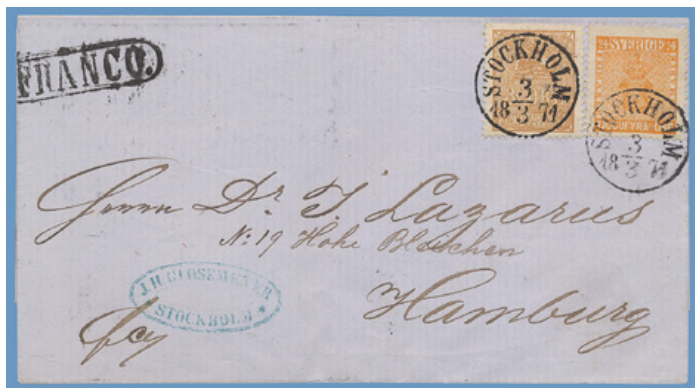 FRANCO.
STOCKHOLM
3
18 3 71
24 SVERIGE 24
STOCKHOLM
3
18 3 71
Herrn Dr. J. Lazarus
No: 19 Hohe Bleichen
Hamburg
J. H. GLOSEMEYER
STOCKHOLM
fco